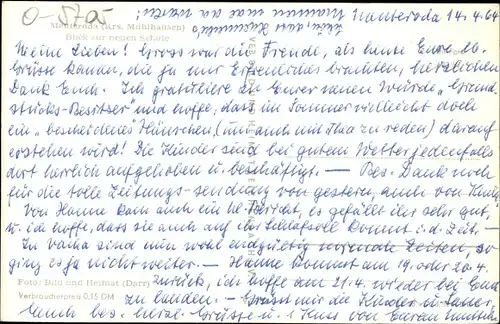 O-585
Menteroda (Krs. Mühlhausen)
Blick zur neuen Schule
Menteroda 14.4.64
Meine Lieben! Gross war die Freude, als heute Eure lb.
Grüsse kamen, die ja nur Erfreuliches brachten, herzlichen
Dank Euch. Ich gratuliere zu Eurer neuen Würde „Grund-
stücks-Besitzer" und hoffe, dass im Sommer vielleicht doch
ein „bescheidenes Häuschen" (um auch mit Thea zu reden) darauf
erstehen wird! Die Kinder sind bei gutem Wetter jedenfalls
dort herrlich aufgehoben u. beschäftigt. — Bes. Dank noch
für die tolle Zeitungs-sendung von gestern, auch von
Von Hanne kam auch ein Bericht, es gefällt ihr sehr gut,
u. ich hoffe, dass sie auch auf ihre kommt i. d. Zeit. —
In Vacha sind nun wohl endgültig normale Zeiten, so
ging es ja nicht weiter. — Hanne kommt am 19. oder 20.4.
zurück, ich hoffe am 21.4. wieder bei Euch
zu landen. — Grüsst mir die Kinder u.
Euch bes. herzl. Grüsse u. 1 Kuss von Eurer
Foto: Bild und Heimat (Darr)
Verbraucherpreis 0,15 DM